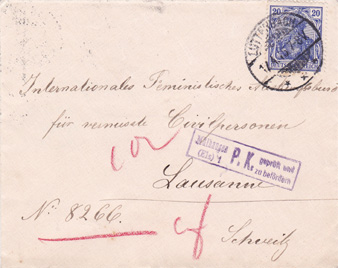 20 20
LUTTERBACH
Internationales Feministisches
für vermisste Civilpersonen
P. K. geprüft und
zu befördern
Lausanne
No 8266.
Schweiz